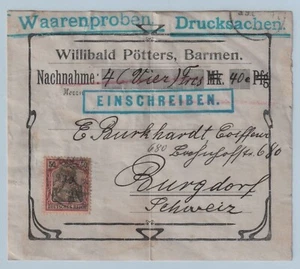 Waarenproben. Drucksachen.
Willibald Pötters, Barmen.
Nachnahme: 4 (Vier) Frcs Mk. 40 c Pfg
EINSCHREIBEN.
E. Burkhardt Coiffeur
680 Bahnhofstr. 680
Burgdorf
Schweiz
DEUTSCHES REICH